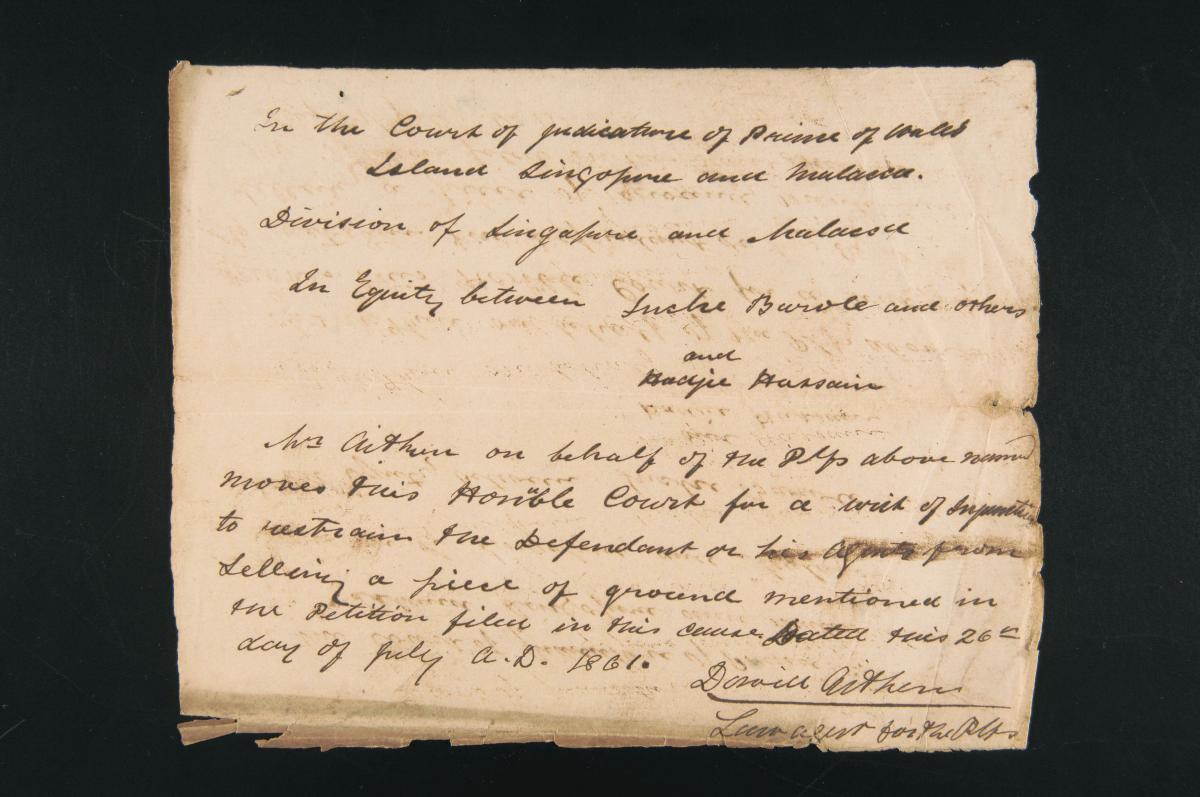 In the Court of Judicature of Prince of Wales
Island Singapore and Malacca.
Division of Singapore and Malacca
In Equity between Inche Bawole and others
and
Hadjie Hussain
Mr Aitken on behalf of the Pltfs above named
moves this Hon'ble Court for a writ of Injunction
to restrain the Defendant or his Agents from
Selling a piece of ground mentioned in
the Petition filed in this cause Dated this 26th
day of July A.D. 1861.
David Aitken
Law agent for the Plts